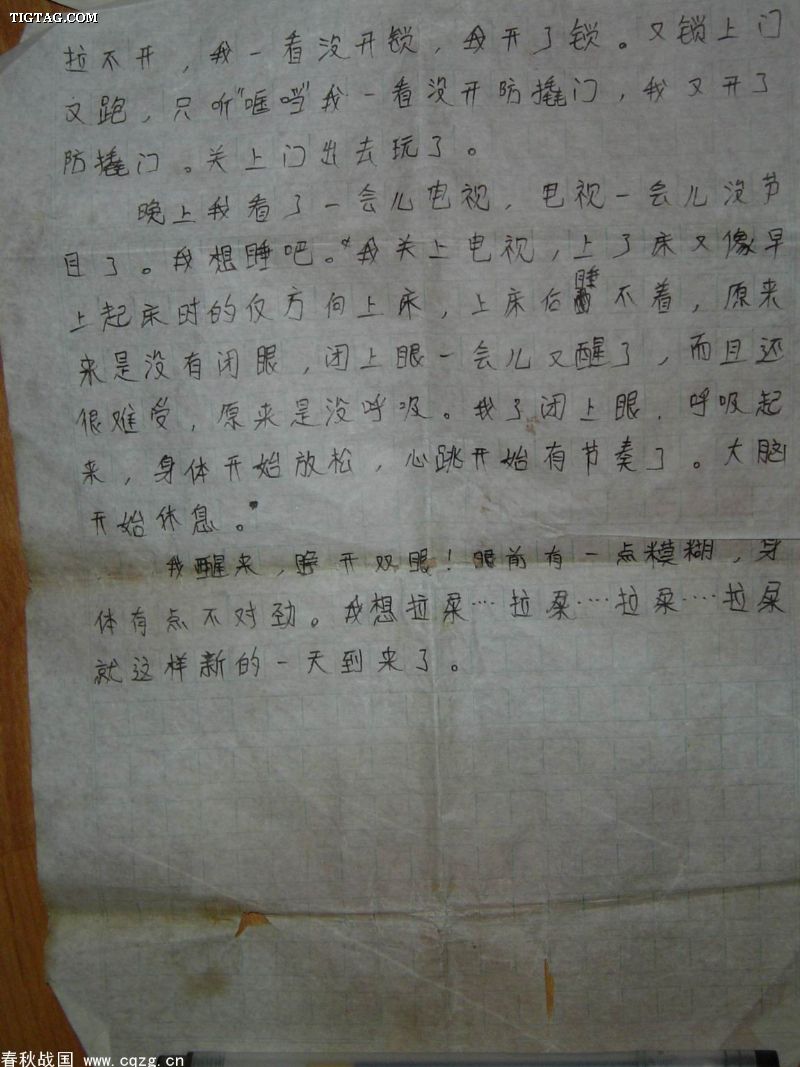 TIGTAG.COM
拉不开，我一看没开锁，我开了锁。又锁上门
又跑，只听"哐当"我一看没开防撬门，我又开了
防撬门。关上门出去玩了。
晚上我看了一会儿电视，电视一会儿没节
目了。我想睡吧。我关上电视，上了床又像早
上起床时的仅方向上床，上床后睡不着，原来
来是没有闭眼，闭上眼一会儿又醒了，而且还
很难受，原来是没呼吸。我了闭上眼，呼吸起
来，身体开始放松，心跳开始有节奏了。大脑
开始休息。
我醒来，睁开双眼！眼前有一点模糊，身
体有点不对劲。我想拉屎…拉屎…拉屎…拉屎
就这样新的一天到来了。
春秋战国 www.cqzg.cn